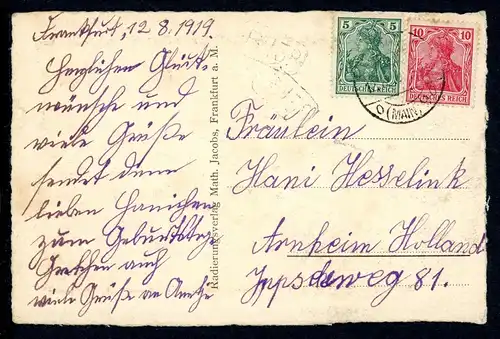 Frankfurt, 12 8. 1919.
Herzlichen Glück-
wünsche und
viele Grüße
sendet dem
lieben Hanichen
zum Geburtstage
Gretchen auch
viele Grüße an
Radierungsverlag Math. Jacobs, Frankfurt a. M.
5 5
DEUTSCHES REICH
10 10
DEUTSCHES REICH
(MAIN)
Fräulein
Hani Hesselink
Arnheim Holland
81.